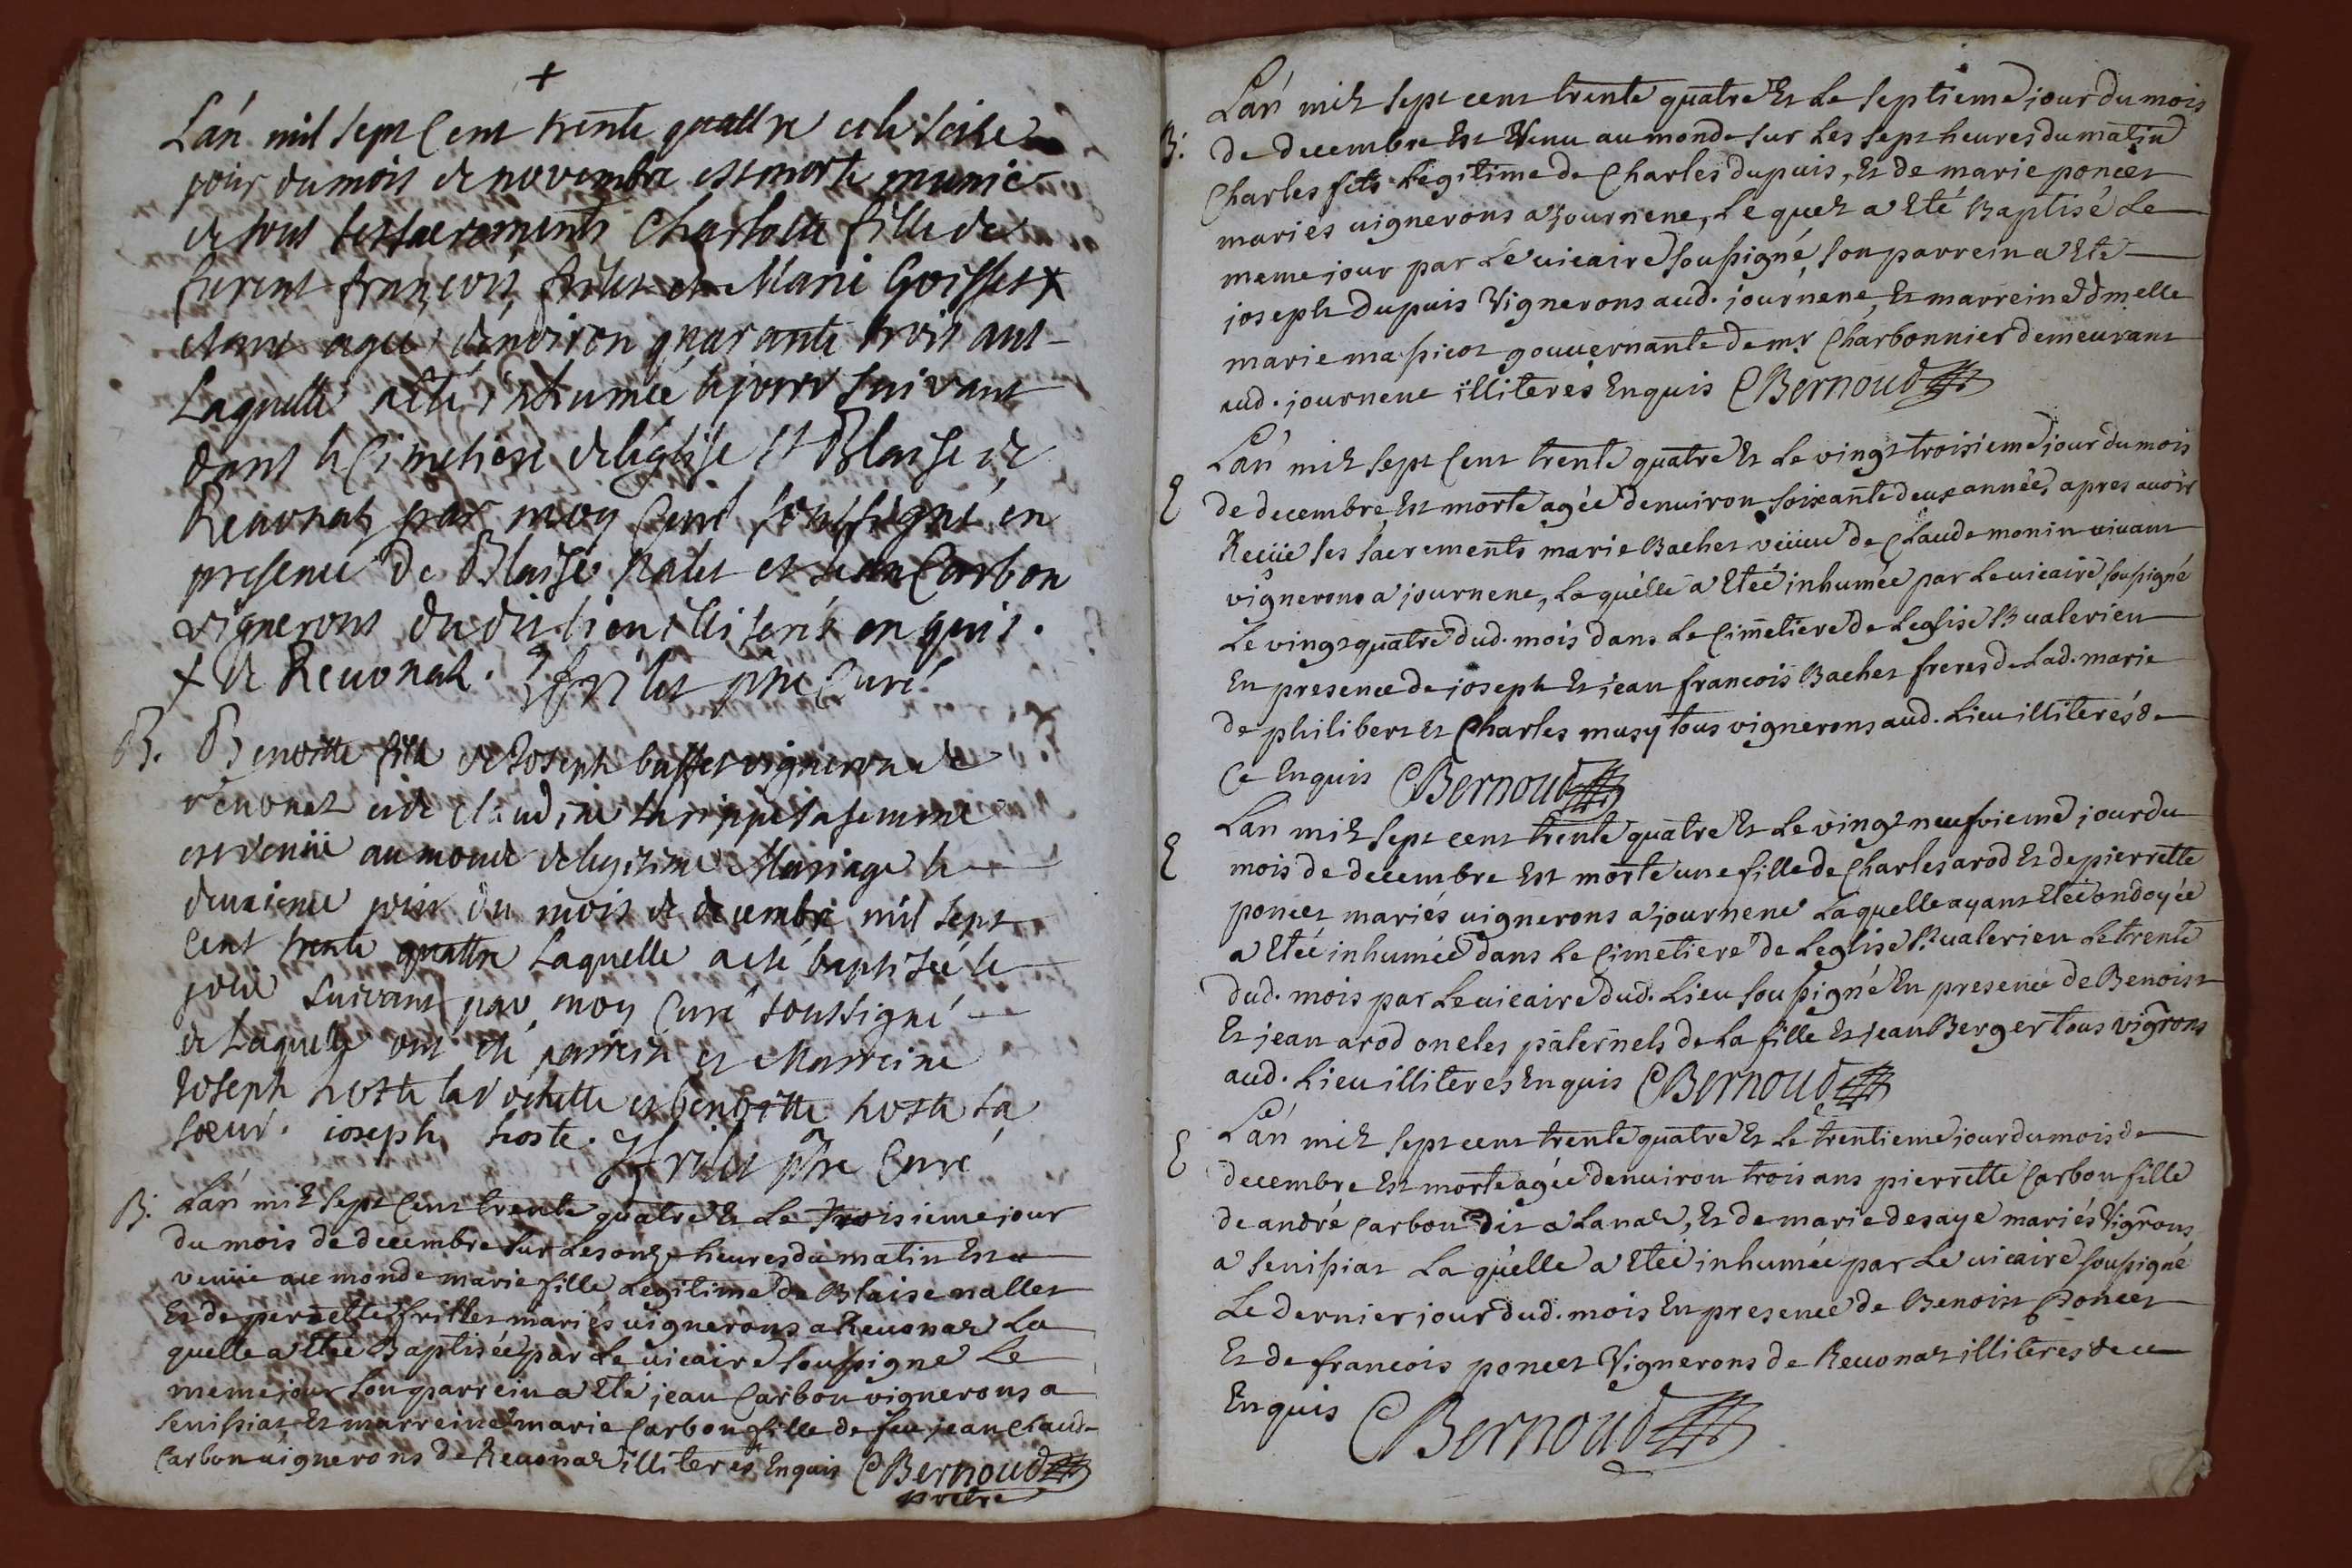 +
L'an mil sept Cent trente quattre et le seise
jour du mois de novembre est morte munie
de tous ses sacrements Charlotte fille de
furent françois frilet et Marie Goisset +
etant agée d'environ quarante trois ans
Laquelle a été inhumée le jour suivant
dans le Cimetiere de l'église St Blaise de
Reuonatz par moy Curé soussigné en
presence de Blaise Nalet et Jean Carbon
vignerons du dit lieu illiterés enquis.
+ de Reuonatz. Jfrilet ptre Curé
B. Benoitte fille de Joseph buffet vigneron de
reuonatz et de claudine sa femme
est venüe au monde de legitime Mariage le
deuxieme jour du mois de decembre mil sept
Cent trente quattre Laquelle a eté baptisée le
jour suivant par moy Curé soussigné
de Laquelle ont eté parrein et Marreine
Joseph hoste et benoitte hoste sa
soeur. ioseph hoste. Jfrilet ptre Curé
B. L'an mil sept Cent trente quatre Et Le Troisieme jour
du mois de decembre sur Les onze heures du matin Est
venüe au monde marie fille Legitime de Blaise nallet
Et de pernette frillet mariés uignerons a Reuonaz La
quelle a Etee Baptisée par Le uicaire soussigné Le
meme jour son parrein a Eté jean Carbon vignerons a
Senissiat Et marreine marie Carbon fille de feu jean Claude
Carbon uignerons de Reuonaz illiterés Enquis CBernoud
pretre
L'an mil sept cent trente quatre Et Le septieme jour du mois
B. de decembre Est Venu au monde sur Les sept heures du matin
Charles fils Légitime de Charles dupuis, Et de marie poncet
mariés uignerons a journene, Le quel a Eté Baptisé Le
meme jour par Le uicaire soussigné, son parrein a Eté
joseph Dupuis Vignerons aud. journene, Et marreine dmelle
marie massicot gouuernante de mr. Charbonnier demeurant
aud. journene illiterés Enquis CBernoud
L'an mil sept Cent trente quatre Et Le vingt troisieme jour du mois
E de decembre Est morte agée denuiron soixante deux année, apres auoir
Reçüe ses sacrements marie Bachet veüue de Claude monin uiuant
vignerons a journene, Laquelle a Eteé inhumée par Le uicaire soussigné
Le vingt quatre dud. mois dans Le Cimetiere de Leglise St ualerien
En presence de joseph Et jean francois Bachet freres de Lad. marie
de philibert Et Charles musy tous vignerons aud. Lieu illiterés de
Ce Enquis CBernoud
L'an mil sept cent trente quatre Et Le vingt neufvieme jour du
E mois de decembre Est morte une fille de Charles arod Et de pierrette
poncet mariés uignerons a journene Laquelle ayant Eteé ondoyée
a Eteé inhumée dans Le Cimetiere de Leglise St ualerien Le trente
dud. mois par Le uicaire dud. Lieu soussigné En presence de Benoist
Et jean arod oncles paternels de La fille Et jean Berger tous vigrons
aud. Lieu illiteres Enquis CBernoud
L'an mil sept cent trente quatre Et Le trentieme jour du mois de
E decembre Est morte agée denuiron trois ans pierrette Carbon fille
de andré Carbon dit a Lanaz, Et de marie desaye mariés Vigrons
a senissiat Laquelle a Eteé inhumée par Le uicaire soussigné
Le dernier jour dud. mois En presence de Benoist Poncet
Et de francois poncet Vignerons de Reuonaz illiterés de ce
Enquis CBernoud